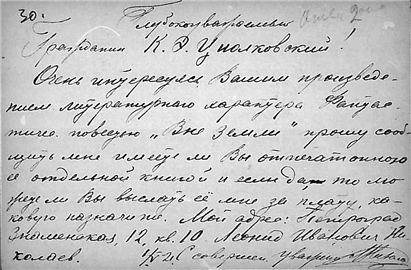 30.
Глубокоуважаемый
Гражданин К. Э. Циолковский!
Очень интересуясь Вашим произведе-
нием литературнаго характера Фантас-
тич. повестью „Вне Земли" прошу сооб-
щить мне имеете ли Вы отпечатанного
её отдельной книгой и если да то мо-
жете ли Вы выслать её мне за плату, ка-
ковую назначите. Мой адрес: Петроград
Знаменская, 12, кв. 10 Леонид Иванович Ни-
колаев. С совершен. уважением